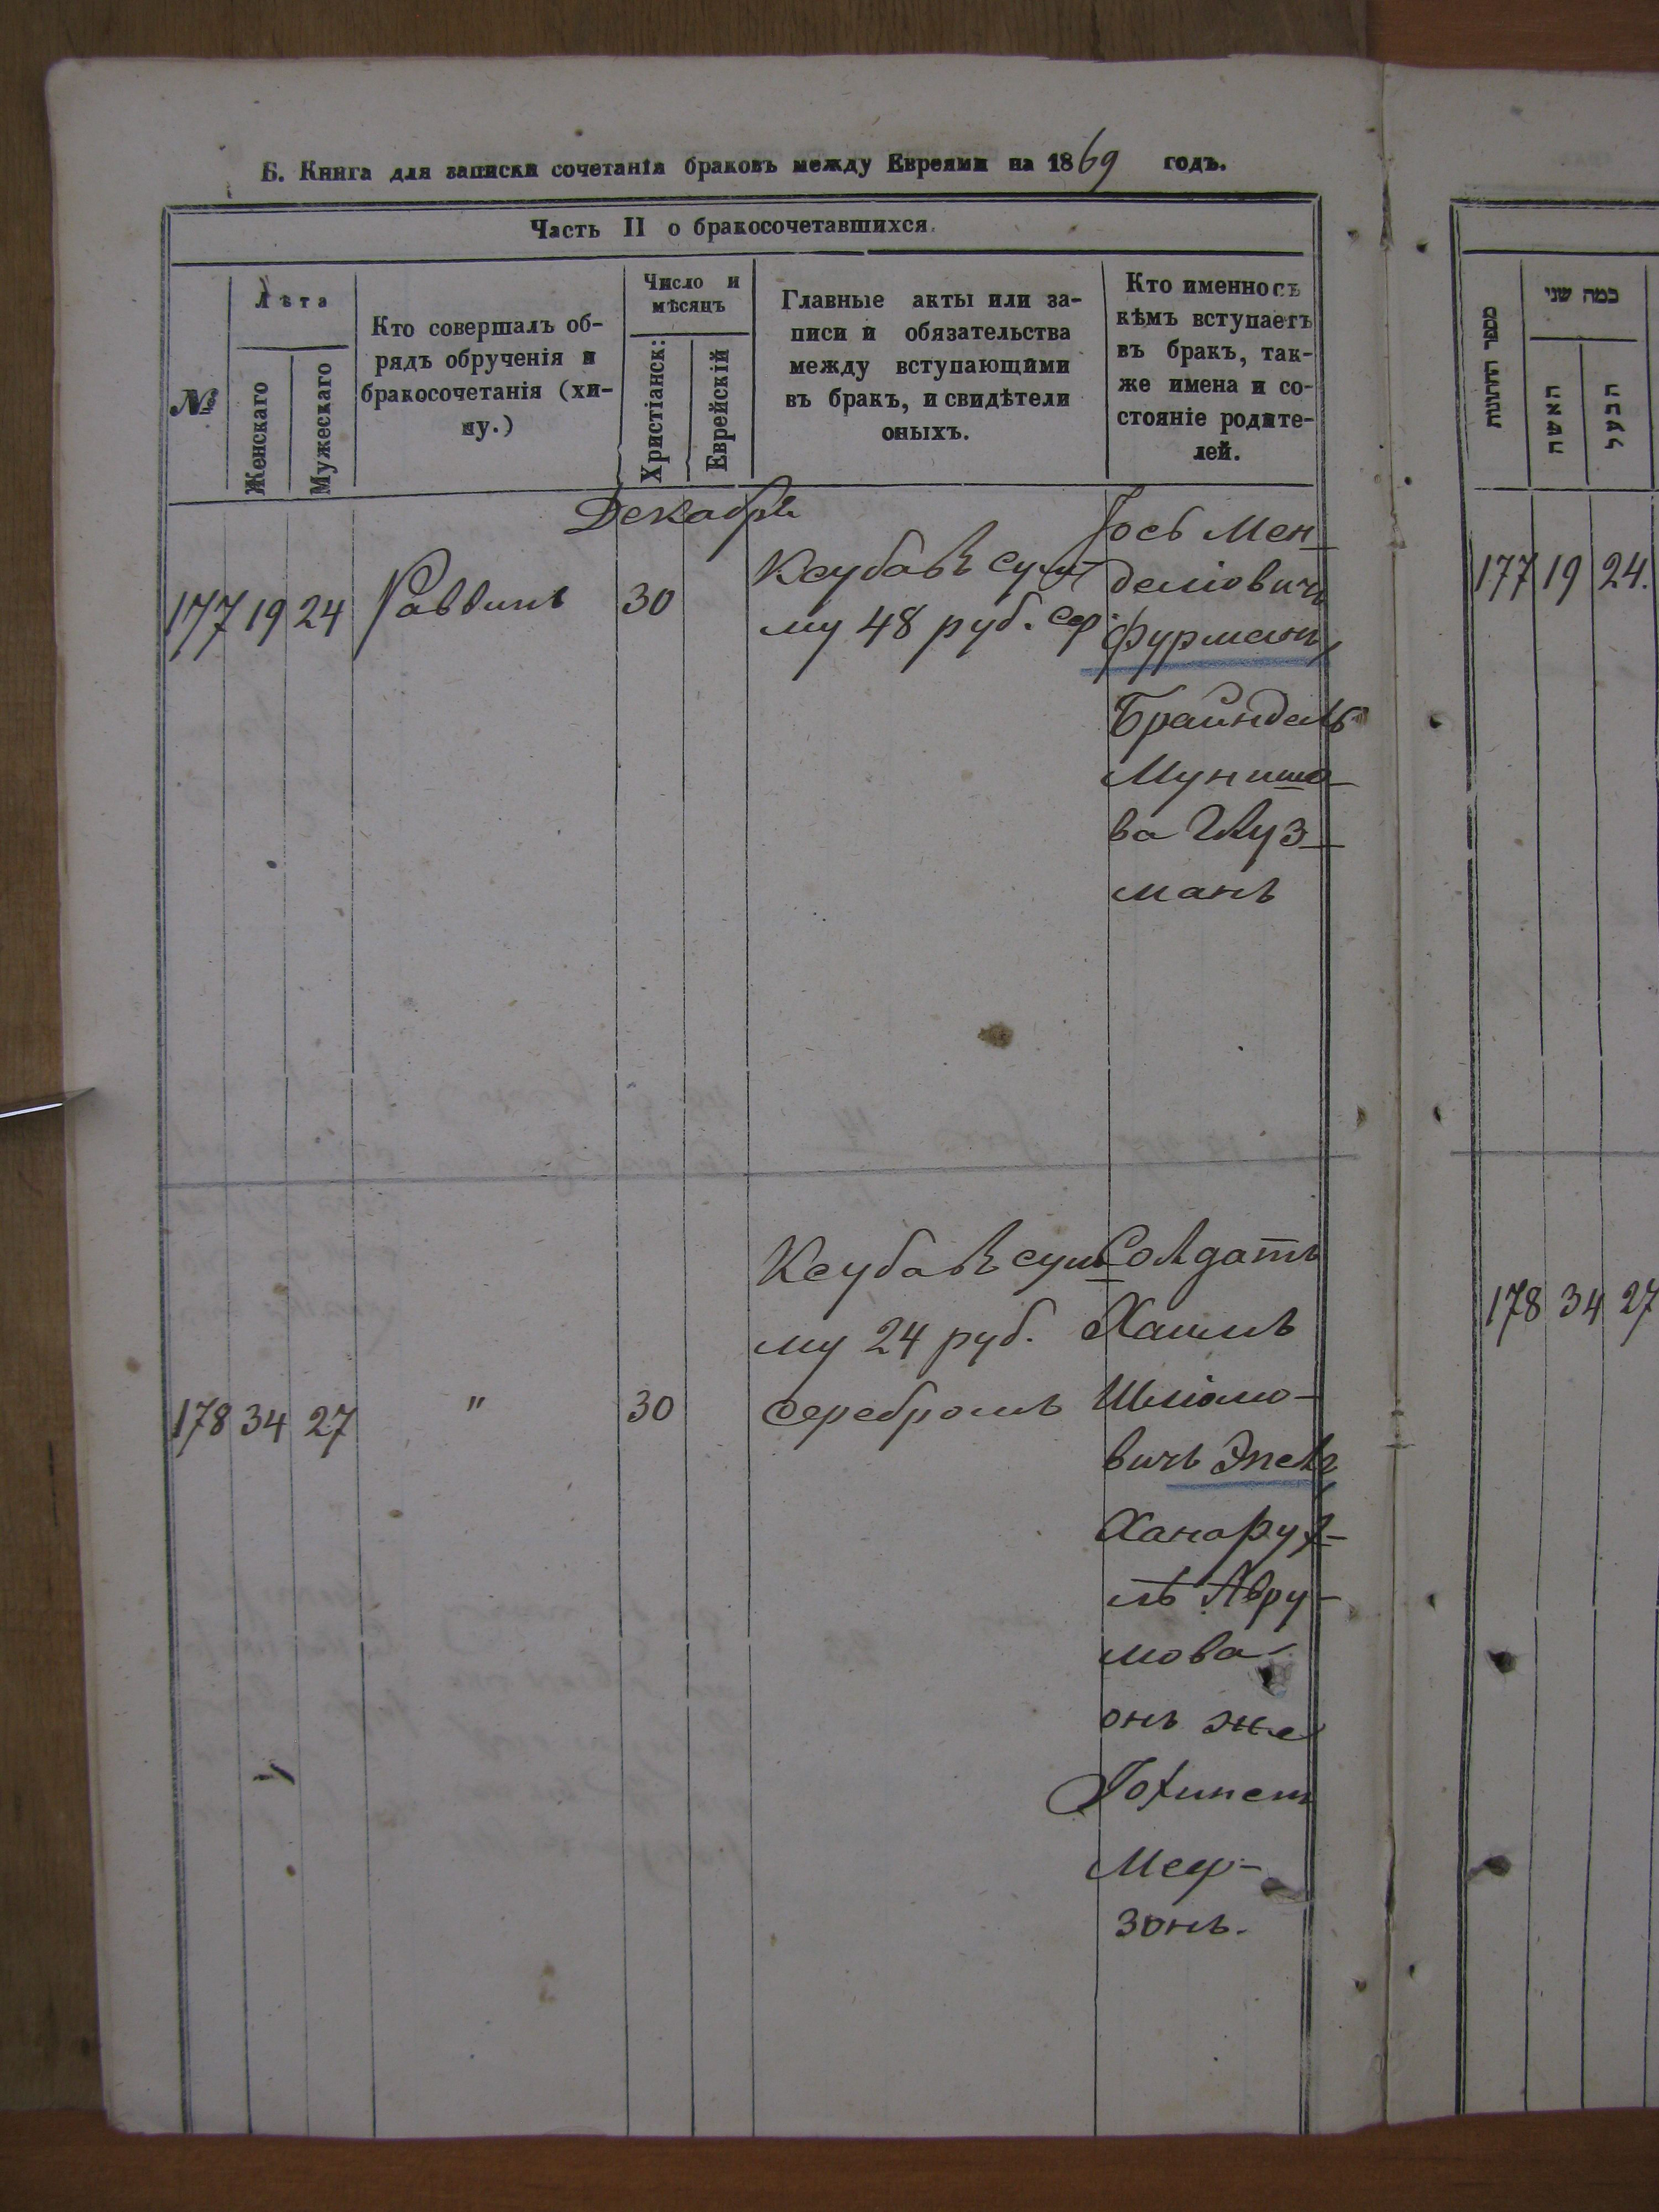 Б. Книга для записки сочетанія браковъ между Евреями на 1869 годъ.
Часть II о бракосочетавшихся.
№
Лѣта
Женскаго
Мужескаго
Кто совершалъ об-
рядъ обрученія и
бракосочетанія (хи-
пу.)
Число и
мѣсяцъ
Христіанск:
Еврейскій
Главные акты или за-
писи и обязательства
между вступающими
въ бракъ, и свидѣтели
оныхъ.
Кто именно съ
кѣмъ вступаетъ
въ бракъ, так-
же имена и со-
стояніе родите-
лей.
Декабрь
177 19 24 Раввинъ 30
Ксуба въ сум-
му 48 руб. сер.
Іось Мен-
деліовичъ
Фурманъ,
Браиндель
Мунишо-
ва Глуз-
манъ
178 34 27 " 30
Ксуба въ сум-
му 24 руб.
серебромъ
Солдатъ
Хаимъ
Шліомо-
вичъ
Авру-
мова
онъ же
зонъ.
מספר החתונות
כמה שני
האשה
הבעל
177 19 24.
178 34 27